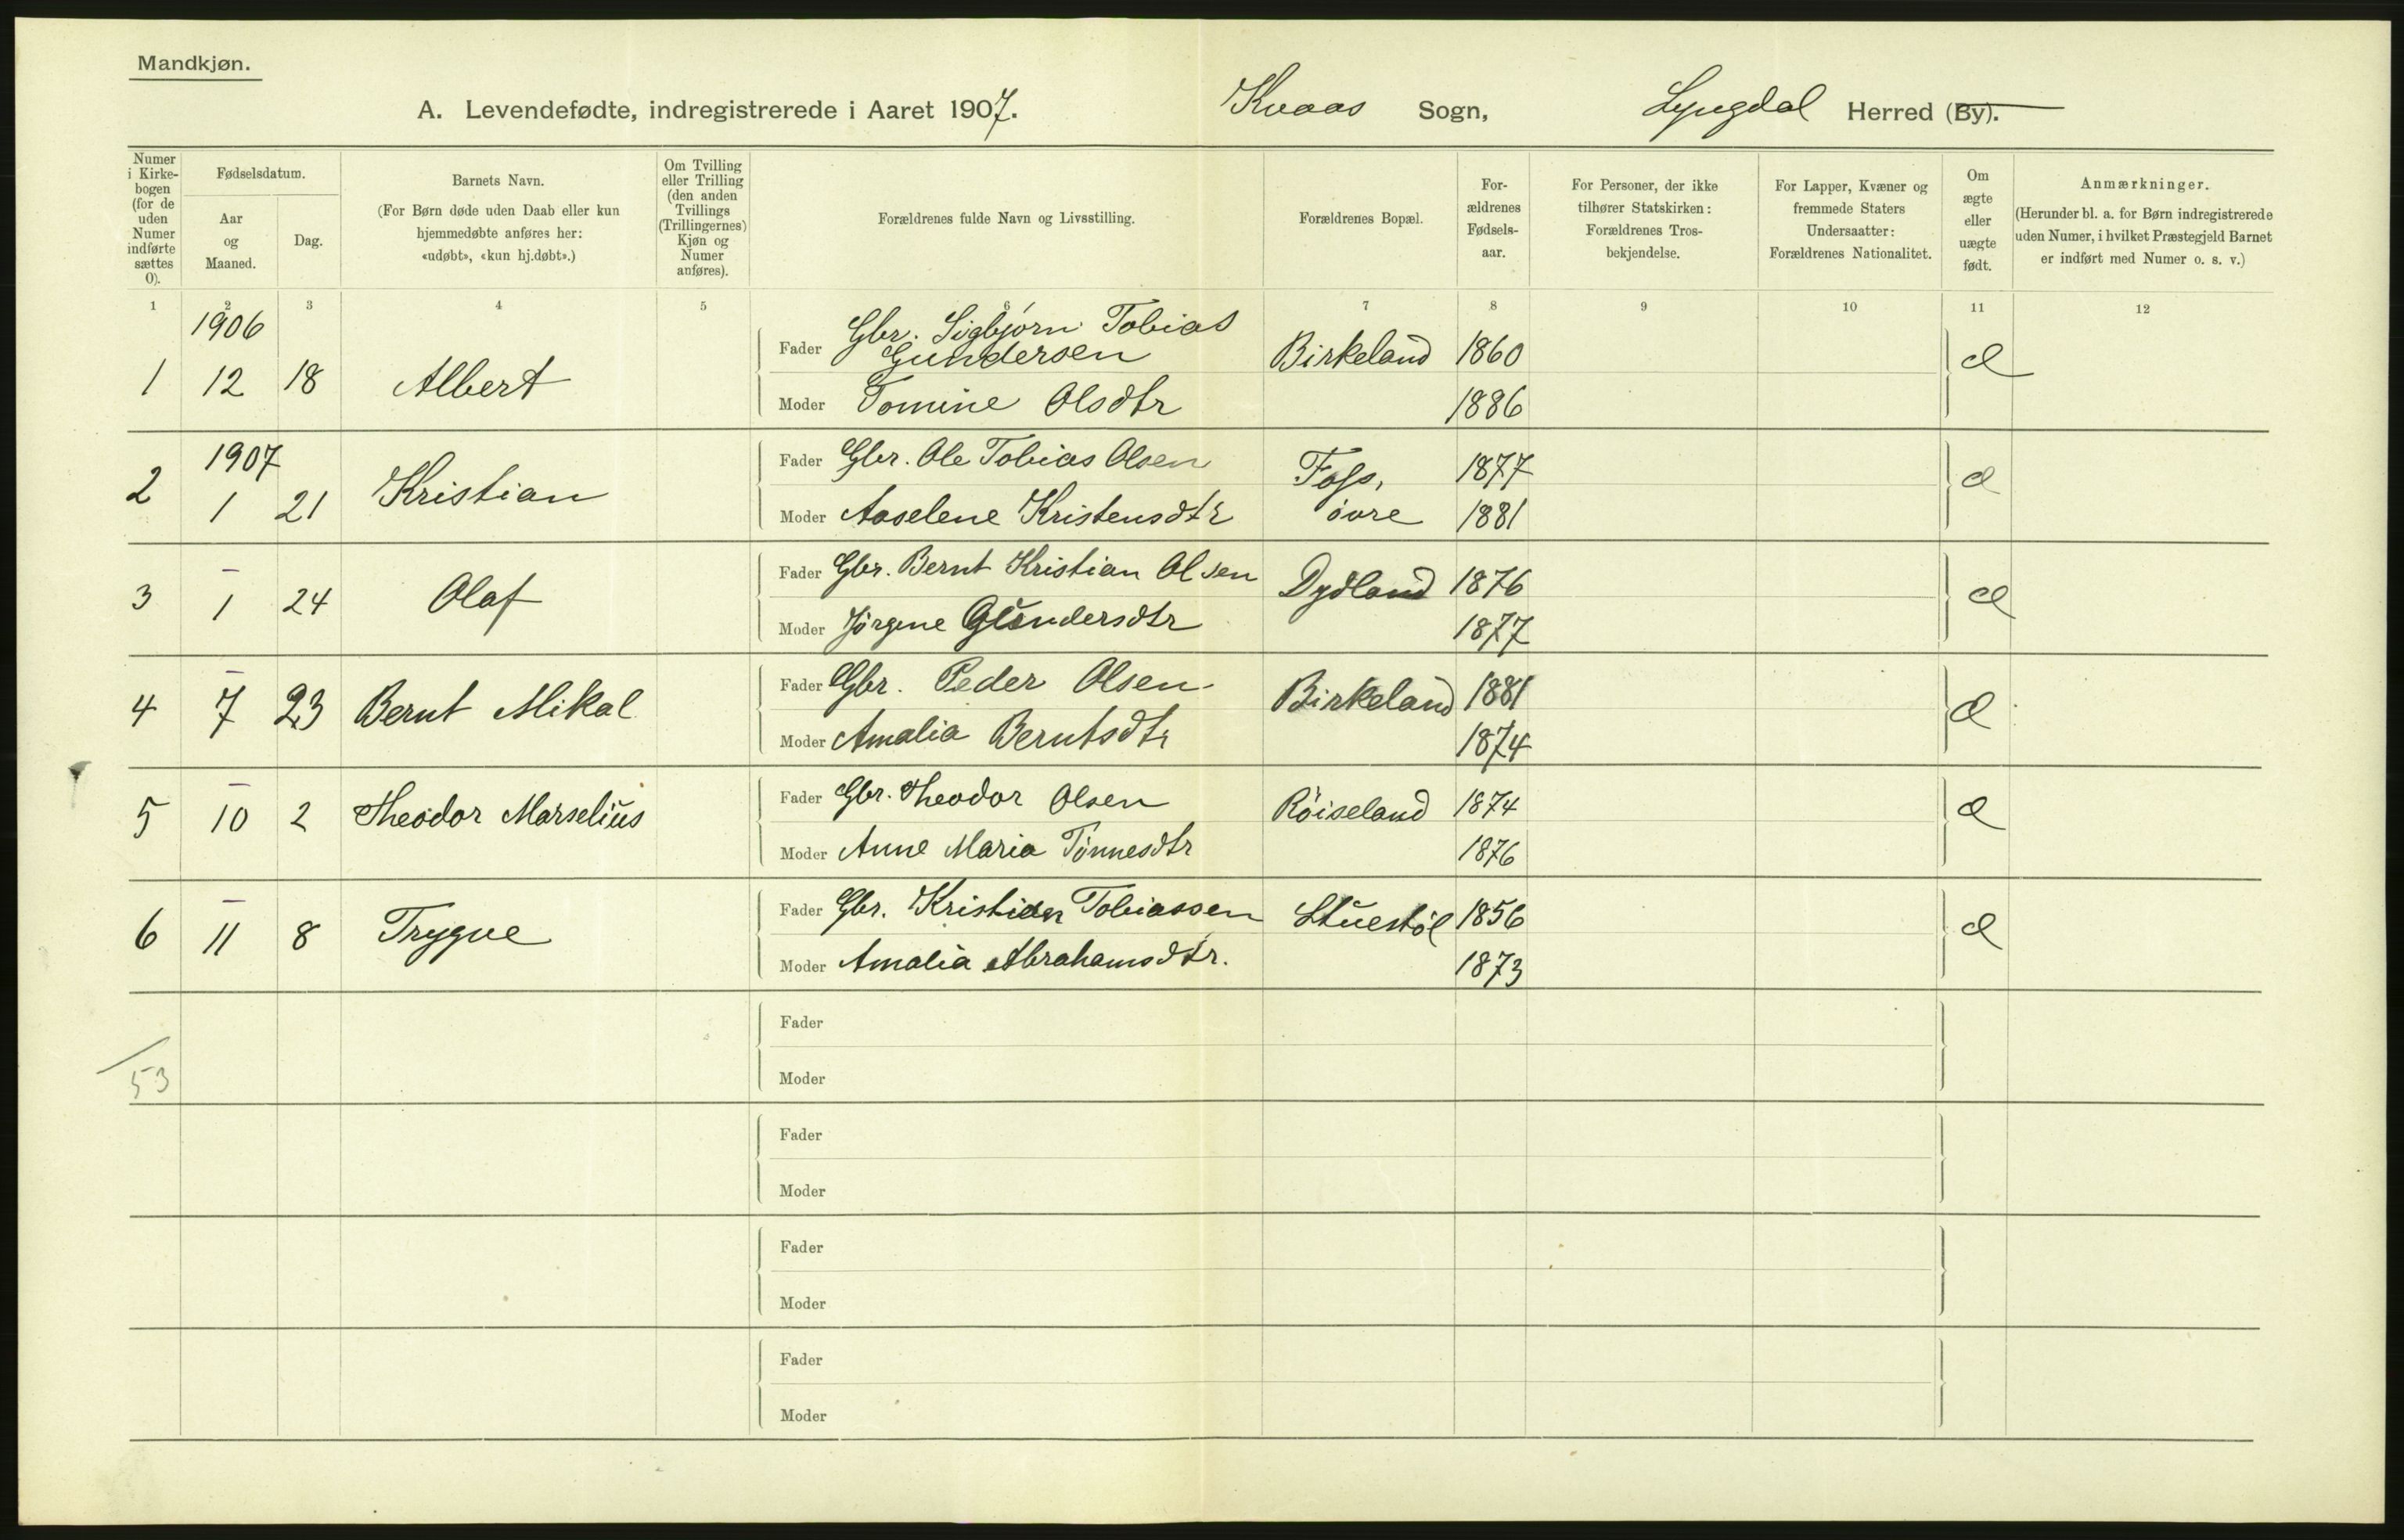 Mandkjøn.
A. Levendefødte, indregistrerede i Aaret 1907. Kvaas Sogn, Lyngdal Herred (By).
Numer i Kirke-bogen (for de uden Numer indførte sættes 0).
Fødselsdatum.
Aar og Maaned.
Dag.
Barnets Navn.
(For Børn døde uden Daab eller kun
hjemmedøbte anføres her:
«udøbt», «kun hj.døbt».)
Om Tvilling
eller Trilling
(den anden
Tvillings
(Trillingernes)
Kjøn og
Numer
anføres).
Forældrenes fulde Navn og Livsstilling.
Forældrenes Bopæl.
For-
ældrenes
Fødsels-
aar.
For Personer, der ikke
tilhører Statskirken:
Forældrenes Tros-
bekjendelse.
For Lapper, Kvæner og
fremmede Staters
Undersaatter:
Forældrenes Nationalitet.
Om
ægte
eller
uægte
født.
Anmærkninger.
(Herunder bl. a. for Børn indregistrerede
uden Numer, i hvilket Præstegjeld Barnet
er indført med Numer o. s. v.)
1 2 3 4 5 6 7 8 9 10 11 12
1906
1 12 18 Albert
Fader Gbr. Sigbjørn Tobias
Gundersen Birkeland 1860 æ
Moder Tomine Olsdtr 1886
1907
2 1 21 Kristian
Fader Gbr. Ole Tobias Olsen Foss, 1877 æ
Moder Aaselene Kristensdtr øvre 1881
3 – 1 24 Olaf
Fader Gbr. Bernt Kristian Olsen Dydland 1876 æ
Moder Jørgine Gundersdtr 1877
4 – 7 23 Bernt Mikal
Fader Gbr. Peder Olsen Birkeland 1881 æ
Moder Amalia Berntsdtr 1874
5 – 10 2 Theodor Marselius
Fader Gbr. Theodor Olsen Røiseland 1874 æ
Moder Anne Maria Tønnesdtr 1876
6 – 11 8 Trygve
Fader Gbr. Kristian Tobiassen Stuestøl 1856 æ
Moder Amalia Abrahamsdtr. 1873
Fader
53
Moder
Fader
Moder
Fader
Moder
Fader
Moder